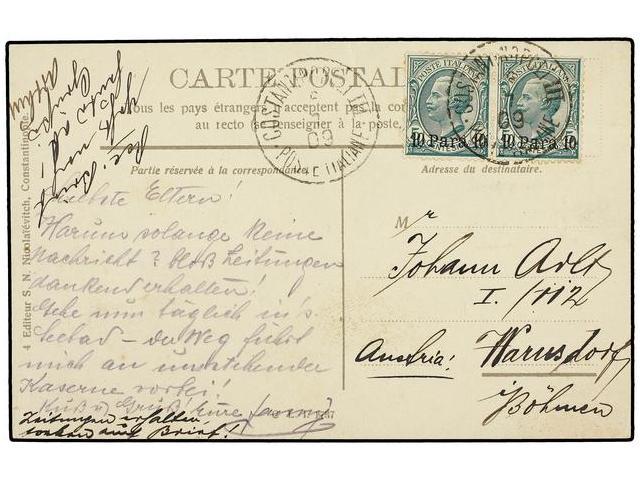 CARTE POSTALE
Tous les pays étrangers n'acceptent pas la
au recto (se renseigner à la poste
Partie réservée à la correspondance.
Adresse du destinataire.
CONSTANTINOPLI
POSTE ITALIANE
09
POSTE ITALIANE
10 Para 10
POSTE ITALIANE
10 Para 10
4 Editeur S. N. Nicolaïévitch, Constantinople.
Liebste Eltern!
Warum solange keine
Nachricht? Bloß Zeitungen
dankend erhalten!
Gehe nun täglich in's
Seebad – der Weg führt
mich an umstehender
Kaserne vorbei!
Kuß u. Gruß! Eure
Zeitungen erhalten
auf Brief!
Mr
Johann
I./112
Austria! Warnsdorf
i/Böhmen